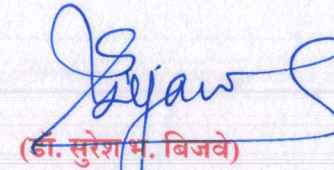 (डॉ. सुरेश भ. बिजवे)